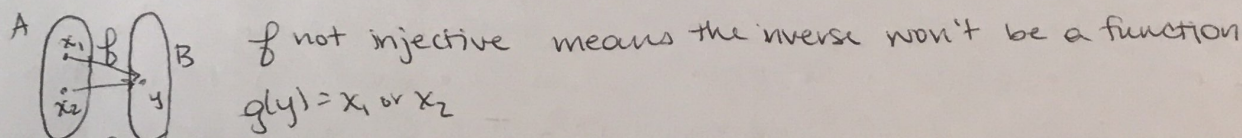 A x₁ f B f not injective means the inverse won't be a function
x₂ y g(y) = x₁ or x₂